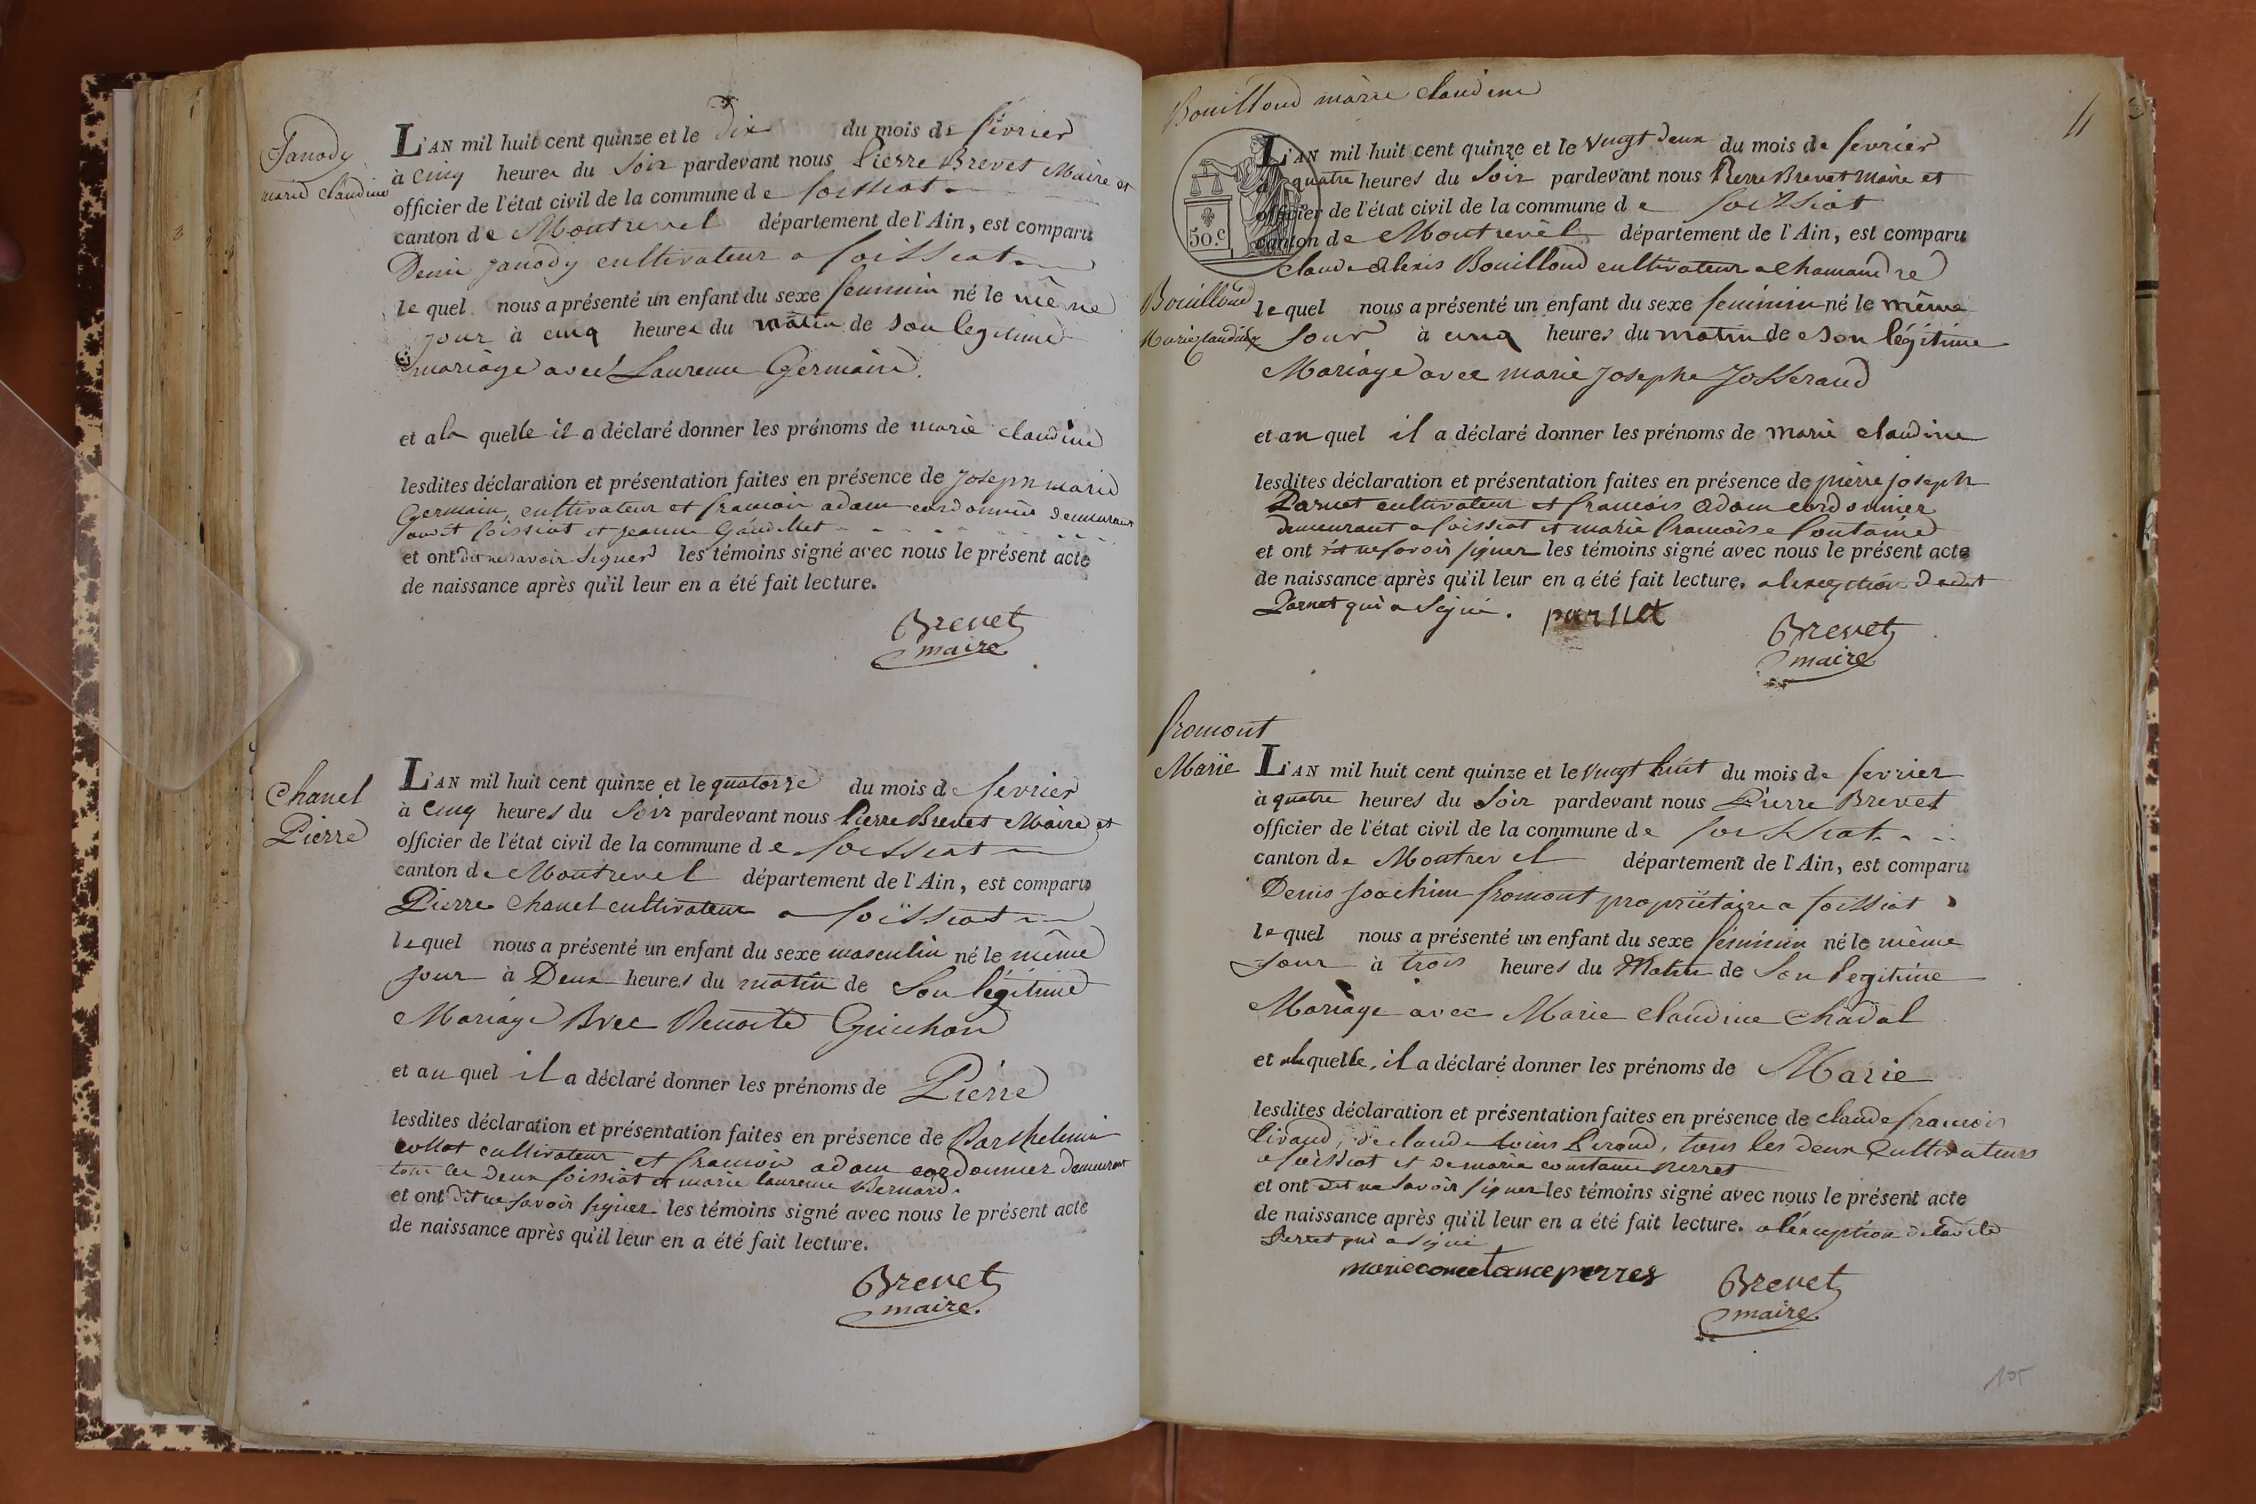 Janody
marie claudine
L'AN mil huit cent quinze et le dix du mois de février
à cinq heures du soir pardevant nous Pierre Brevet Maire et
officier de l'état civil de la commune de foissiat
canton de Montrevel département de l'Ain, est comparu
Denis Janody cultivateur a foissiat
le quel nous a présenté un enfant du sexe feminin né le même
jour à cinq heures du matin de son légitime
mariage avec Laurence Germain
et a la quelle il a déclaré donner les prénoms de marie claudine
lesdites déclaration et présentation faites en présence de Joseph marie
Germain cultivateur et francois adam cordonnier demeurant
a foissiat et jeanne
et ont dit ne savoir signer les témoins signé avec nous le présent acte
de naissance après qu'il leur en a été fait lecture.
Brevet
maire
Chanel
Pierre
L'AN mil huit cent quinze et le quatorze du mois de fevrier
à cinq heures du soir pardevant nous Pierre Brevet Maire et
officier de l'état civil de la commune de foissiat
canton de Montrevel département de l'Ain, est comparu
Pierre Chanel cultivateur a foissiat
le quel nous a présenté un enfant du sexe masculin né le même
jour à Deux heures du matin de son légitime
Mariage avec Benoite Guichon
et au quel il a déclaré donner les prénoms de Pierre
lesdites déclaration et présentation faites en présence de Barthelemi
collet cultivateur et francois adam cordonnier demeurant
tous les deux foissiat et marie laurence Bernard.
et ont dit ne savoir signer les témoins signé avec nous le présent acte
de naissance après qu'il leur en a été fait lecture.
Brevet
maire.
Bouilloud marie claudine
11
50.c
Bouilloud
Marie claudine
L'AN mil huit cent quinze et le vingt deux du mois de fevrier
à quatre heures du soir pardevant nous Pierre Brevet Maire et
officier de l'état civil de la commune de foissiat
canton de Montrevel département de l'Ain, est comparu
Claude Alexis Bouilloud cultivateur a Chamandre
le quel nous a présenté un enfant du sexe feminin né le même
jour à cinq heures du matin de son légitime
Mariage avec marie Josephe Josserand
et au quel il a déclaré donner les prénoms de marie claudine
lesdites déclaration et présentation faites en présence de pierre joseph
Parnet cultivateur et francois adam cordonnier
demeurant a foissiat et marie francoise fontaine
et ont dit ne savoir signer les témoins signé avec nous le présent acte
de naissance après qu'il leur en a été fait lecture. a lexception dudit
Parnet qui a signé. parnet
Brevet
maire
fromont
Marie
L'AN mil huit cent quinze et le vingt huit du mois de fevrier
à quatre heures du soir pardevant nous Pierre Brevet
officier de l'état civil de la commune de foissiat
canton de Montrevel département de l'Ain, est comparu
Denis Joachim fromont propriétaire a foissiat
le quel nous a présenté un enfant du sexe féminin né le même
jour à trois heures du Matin de son legitime
Mariage avec Marie Claudine Chadal
et a la quelle, il a déclaré donner les prénoms de Marie
lesdites déclaration et présentation faites en présence de claude francois
tous les deux cultivateurs
a foissiat et de marie constance perret
et ont dit ne savoir signer les témoins signé avec nous le présent acte
de naissance après qu'il leur en a été fait lecture. a lexception de ladite
Perret qui a signé
marie constance perret
Brevet
maire
105